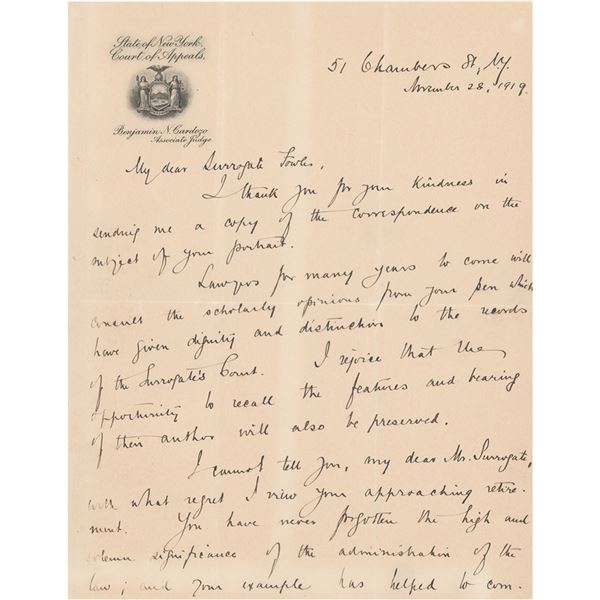 State of New York,
Court of Appeals,
Benjamin N. Cardozo
Associate Judge
51 Chambers St, N.Y.
November 28, 1919.
My dear Surrogate Fowler,
I thank you for your kindness in
sending me a copy of the correspondence on the
subject of your portrait.
Lawyers for many years to come will
consult the scholarly opinions from your pen which
have given dignity and distinction to the records
of the Surrogate's Court. I rejoice that the
opportunity to recall the features and bearing
of their author will also be preserved.
I cannot tell you, my dear Mr. Surrogate,
with what regret I view your approaching retire-
ment. You have never forgotten the high and
solemn significance of the administration of the
law; and your example has helped to com-